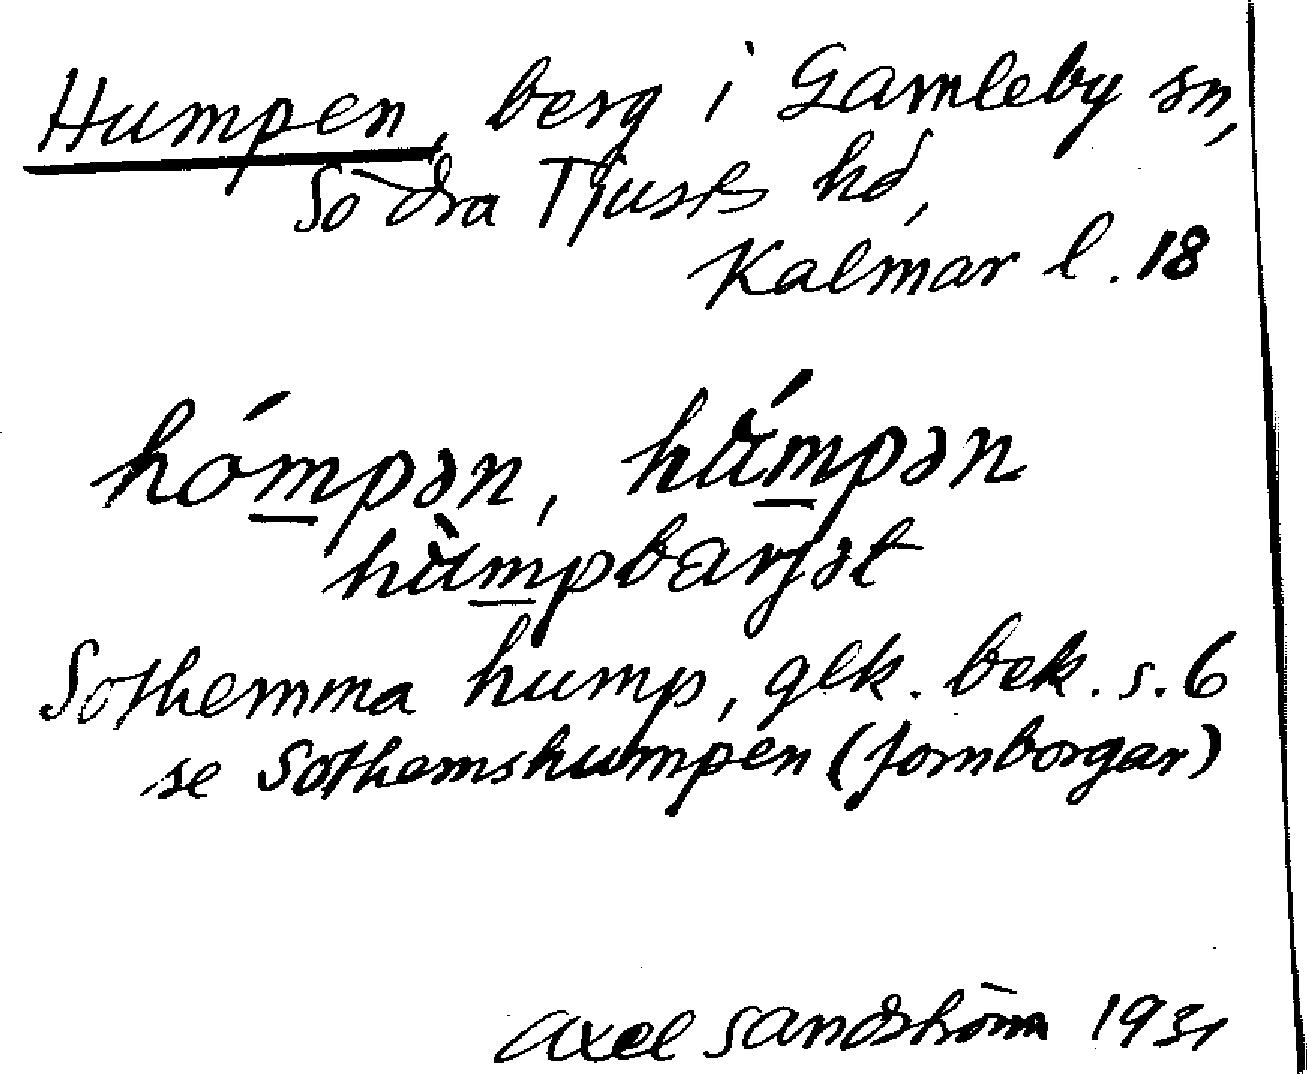 Humpen, berg i Gamleby sn,
Södra Tjusts hd,
Kalmar l. 18
hómpən, hǘmpən
hùmpbarjət
Sothemma hump, gek. bek. s. 6
se Sothemshumpen (fornborgar)
Axel Sandström 1931